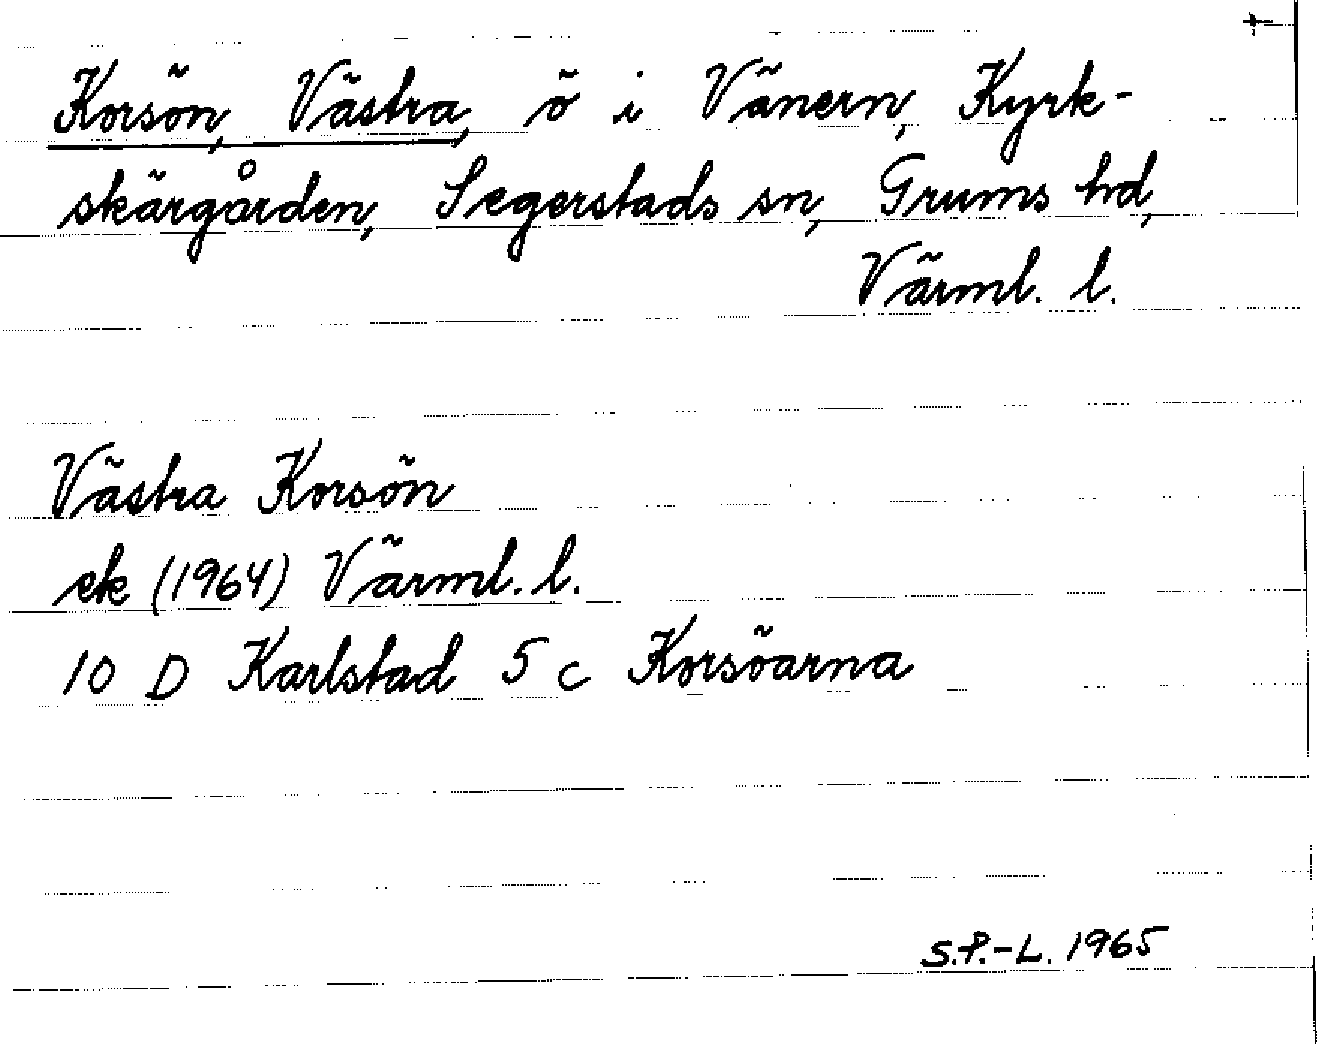 Korsön, Västra, ö i Vänern, Kyrk-
skärgården, Segerstads sn, Grums hd,
Värml. l.
Västra Korsön
ek (1964) Värml. l.
10 D Karlstad 5 c Korsöarna
S.P.-L. 1965